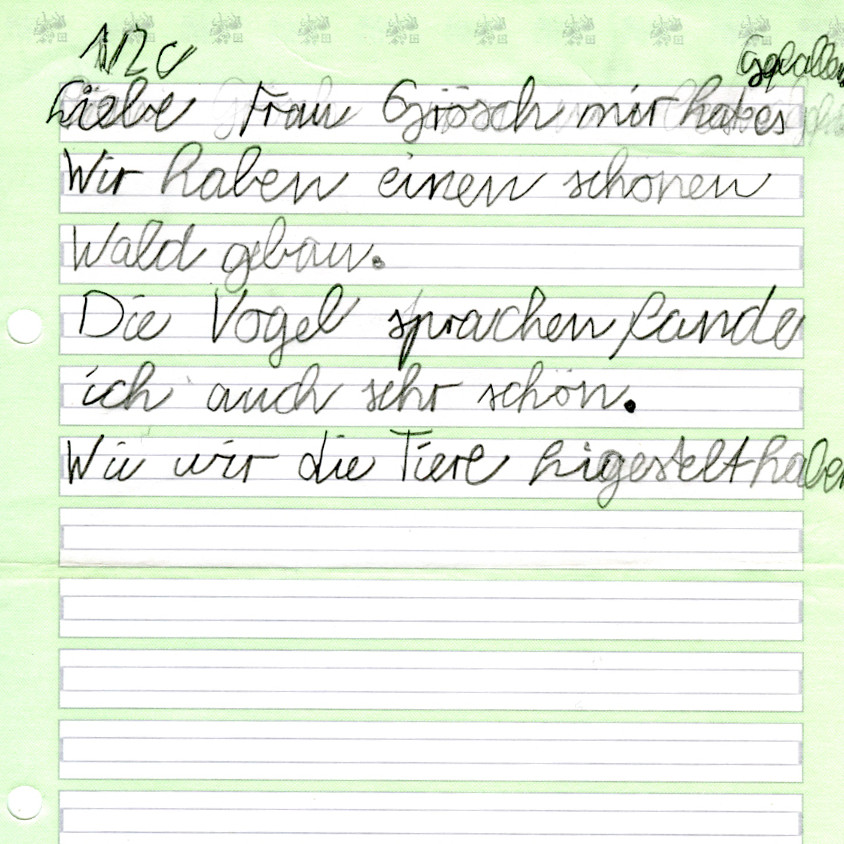 1/2c
gefallen
Liebe Frau Grösch mir hat es
Wir haben einen schönen
Wald gebau.
Die Vogel sprachen fande
ich auch sehr schön.
Wie wir die Tiere higestelt haben